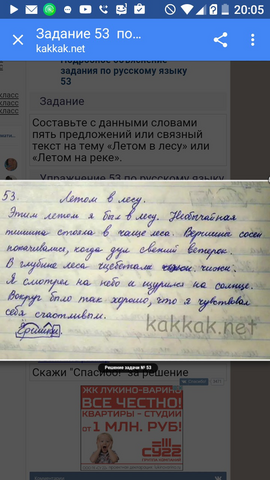 20:05
Задание 53 по...
kakkak.net
Подробное объяснение
задания по русскому языку
53
класс
класс
класс
Задание
Составьте с данными словами
пять предложений или связный
текст на тему «Летом в лесу» или
«Летом на реке».
Упражнение 53 по русскому языку
53. Летом в лесу.
Этим летом я был в лесу. Необычайная
тишина стояла в чаще леса. Вершины сосен
покачивались, когда дул свежий ветерок.
В глубине леса щебетали чижи.
Я смотрел на небо и щурился на солнце.
Вокруг было так хорошо, что я чувствовал
себя счастливым.
kakkak.net
Решение задачи № 53
Скажи "Спасибо" за решение
ЖК ЛУКИНО-ВАРИНО
ВСЕ ЧЕСТНО!
КВАРТИРЫ - СТУДИИ
ОТ 1 МЛН. РУБ!
СУ22